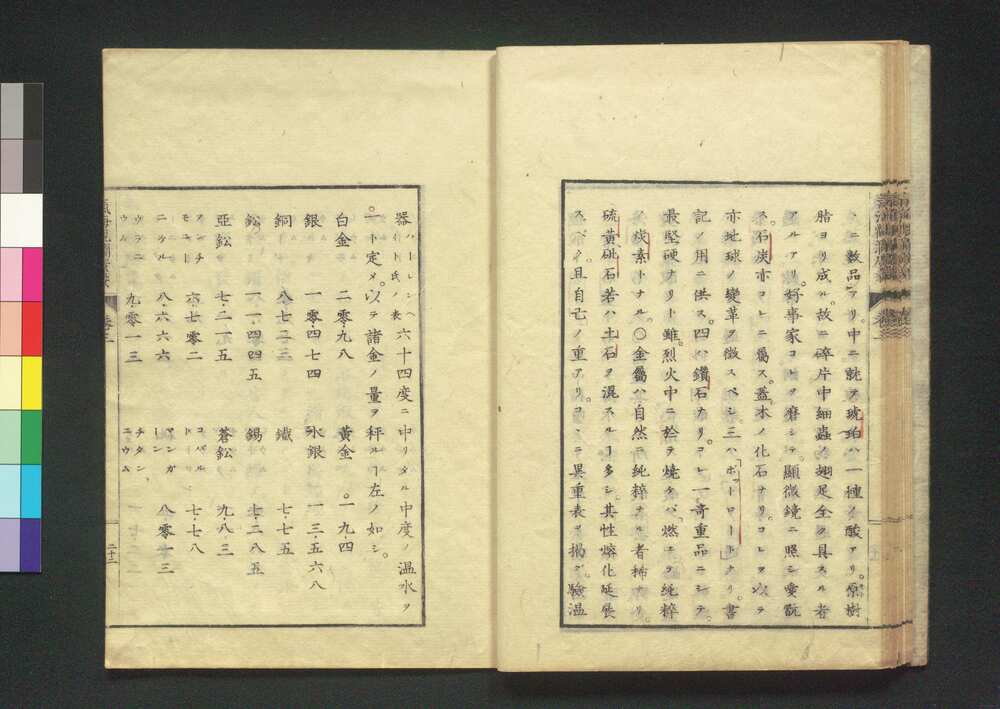 ヽニ數品アリ。中ニ就テ琥珀ハ一種ノ酸アリ。原樹
脂ヨリ成ル。故ニ碎片中細蟲ノ翅足全ク具スル者
アルアリ。好事家コレヲ磨シテ顯微鏡ニ照シ愛翫
ス。石炭亦コレニ屬ス。蓋木ノ化石ナリ。コレヲ以テ
亦地球ノ變革ヲ徴スベシ三ハポットロートナリ。書
記ノ用ニ供ス。四ハ鑽石ナリ。コレ一奇重品ニシテ。
最堅硬ナリト雖。烈火中ニ於テ燒ケバ。燃エテ純粹
ノ炭素トナル。〇金屬ハ自然ニ純粹ナル者稀ナリ。
硫黄砒石若ハ土石ヲ混スルヿ多シ。其性熔化延展
スベク。且自己ノ重アリ。コヽニ異重表ヲ揭グ。驗温
器ハーレンヘイト氏ノ表六十四度ニ中リタル中度ノ温水ヲ
一ト定メ。以テ諸金ノ量ヲ秤ルヿ左ノ如シ。
白金 二零・九八 黄金 一九・四
銀 一零・四七四 水銀 一三・五六八
銅 八・七二三 鐵 七・七五
鉛 一一・四四五 錫 七・二八五
亞鉛 七・二一五 蒼鉛 九・八・三
アンチモニー 六・七零二 コバルト 七・七八
ニッケル 八・六六六 マンガーン 八零一三
ウラニウム 九零一三 チタンニウム
二十二